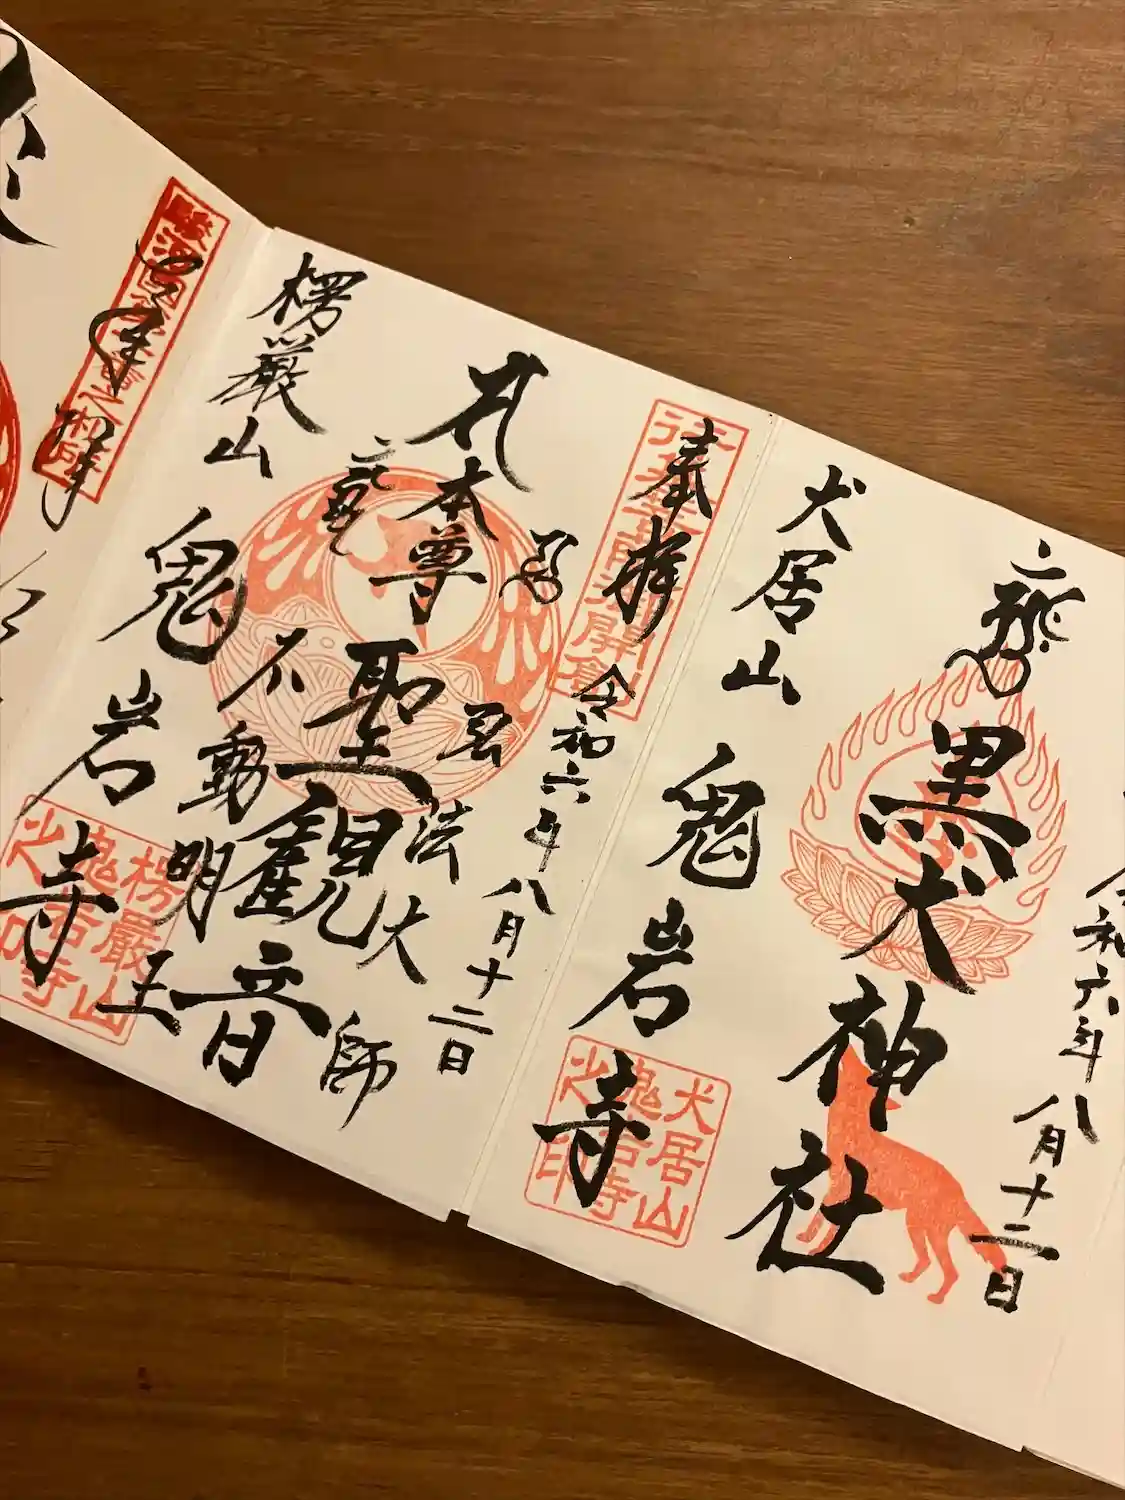 犬居山
鬼岩寺
黒犬神社
令和六年八月十二日
犬居山
鬼岩寺
之印
奉拝
令和六年八月十二日
弘法大師
本尊
聖観音
不動明王
楞厳山
鬼岩寺
楞厳山
鬼岩寺
之印